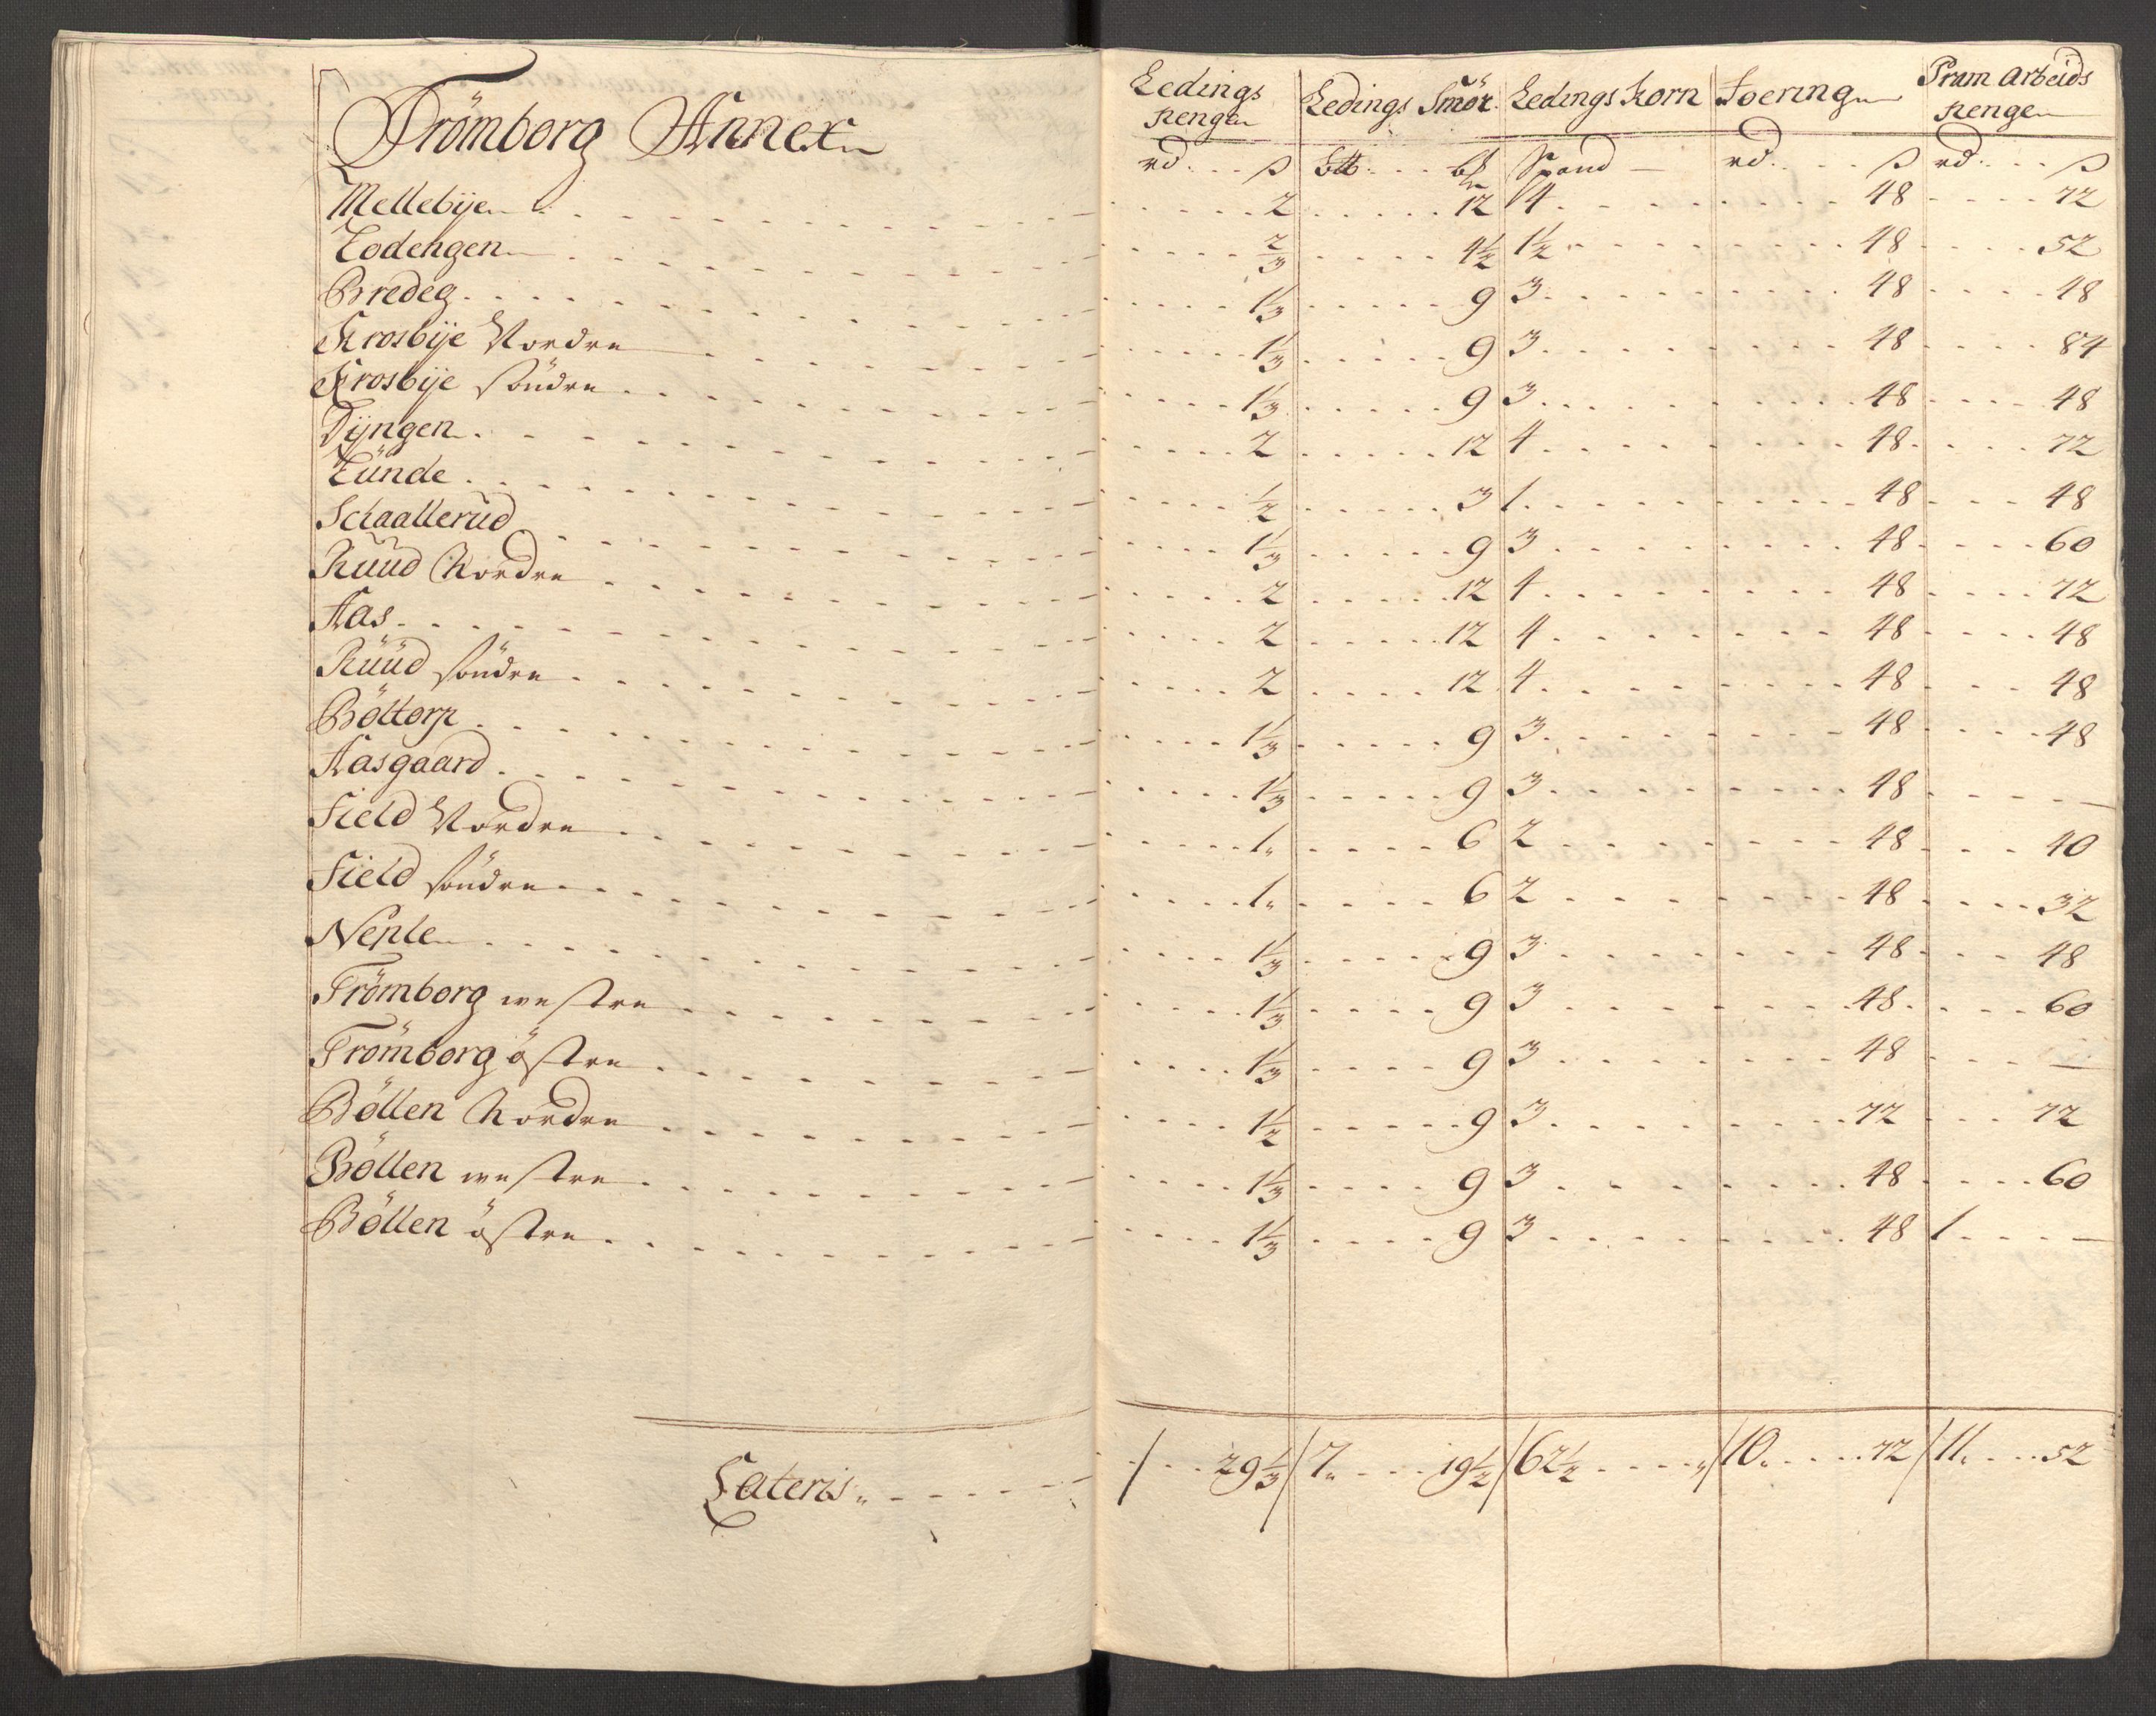 Trömborg Annex
Ledings Penge | Ledings Smör | Ledings Korn | Foering | Pram arbeids Penge
rd. ß | | Spand | rd. ß | rd. ß
Mellebÿe 2 12 4 48 72
Lodengen 2/3 4½ 1½ 48 52
Bredeg 1⅓ 9 3 48 48
Krosbÿe Nordre 1⅓ 9 3 48 84
Krosbÿe söndre 1⅓ 9 3 48 48
Dÿngen 2 12 4 48 72
Lünde ½ 3 1 48 48
Schaallerud 1⅓ 9 3 48 60
Ruud Nordre 2 12 4 48 72
Aas 2 12 4 48 48
Rüüd söndre 2 12 4 48 48
Böltorp 1⅓ 9 3 48 48
Aasgaard 1⅓ 9 3 48 —
Field Nordre 1 6 2 48 40
Field söndre 1 6 2 48 32
Neple 1⅓ 9 3 48 48
Trömborg westre 1⅓ 9 3 48 60
Trömborg östre 1⅓ 9 3 48 —
Böllen Nordre 1½ 9 3 72 72
Böllen westre 1⅓ 9 3 48 60
Böllen östre 1⅓ 9 3 48 1 —
Lateris 29⅓ 7 19½ 62½ 10 72 11 52